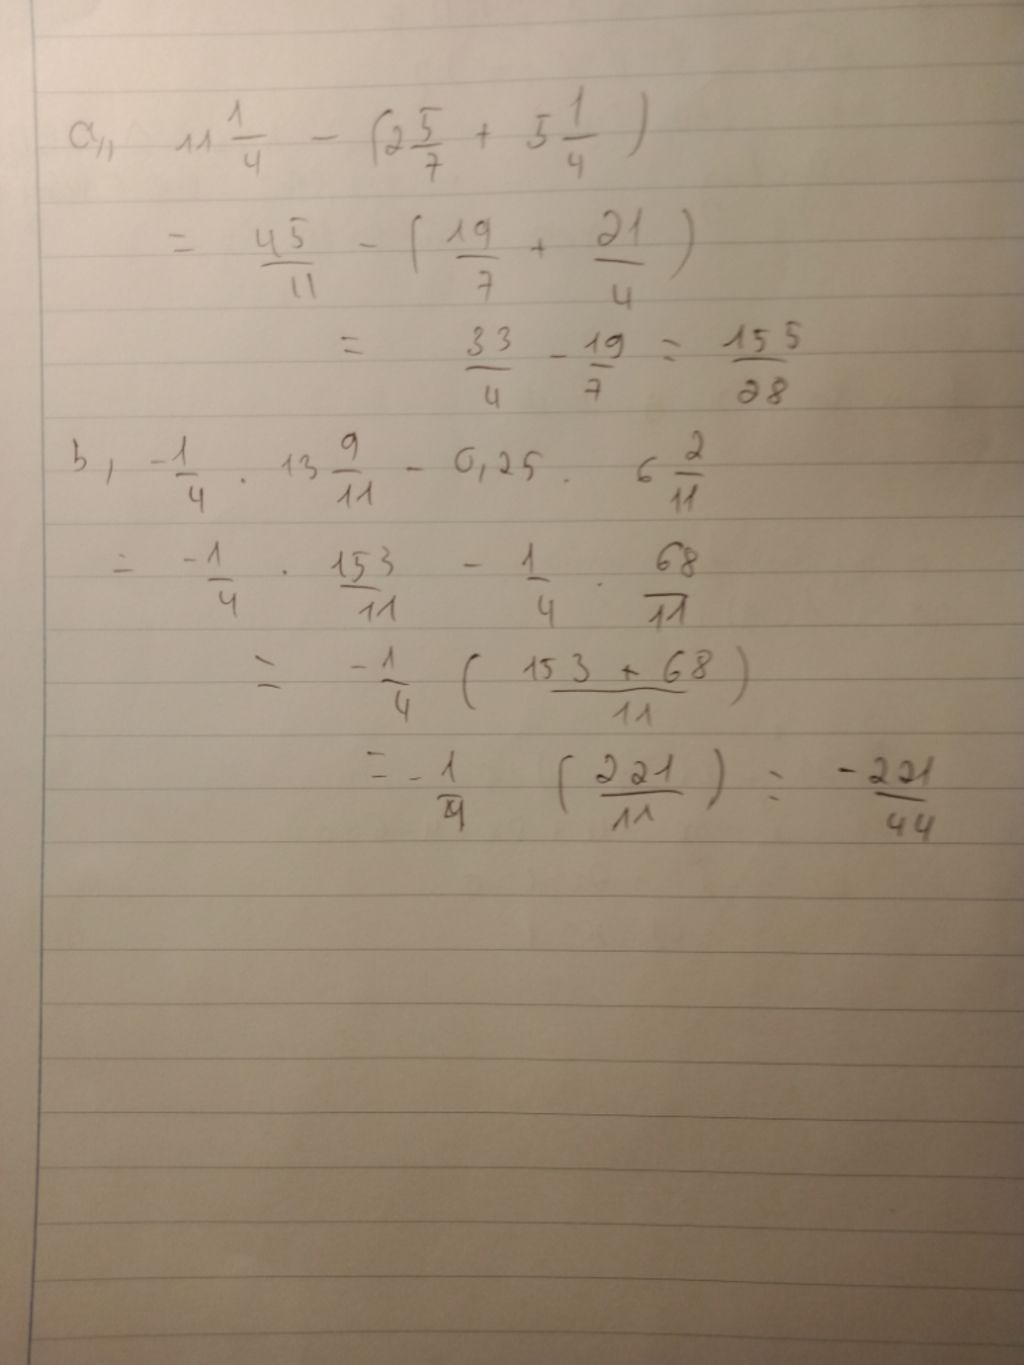 a,, 11 1/4 - (2 5/7 + 5 1/4)
= 45/11 - (19/7 + 21/4)
= 33/4 - 19/7 = 155/28
b, -1/4 . 13 9/11 - 0,25 . 6 2/11
= -1/4 . 153/11 - 1/4 . 68/11
= -1/4 (153 + 68/11)
= -1/4 (221/11) = -221/44